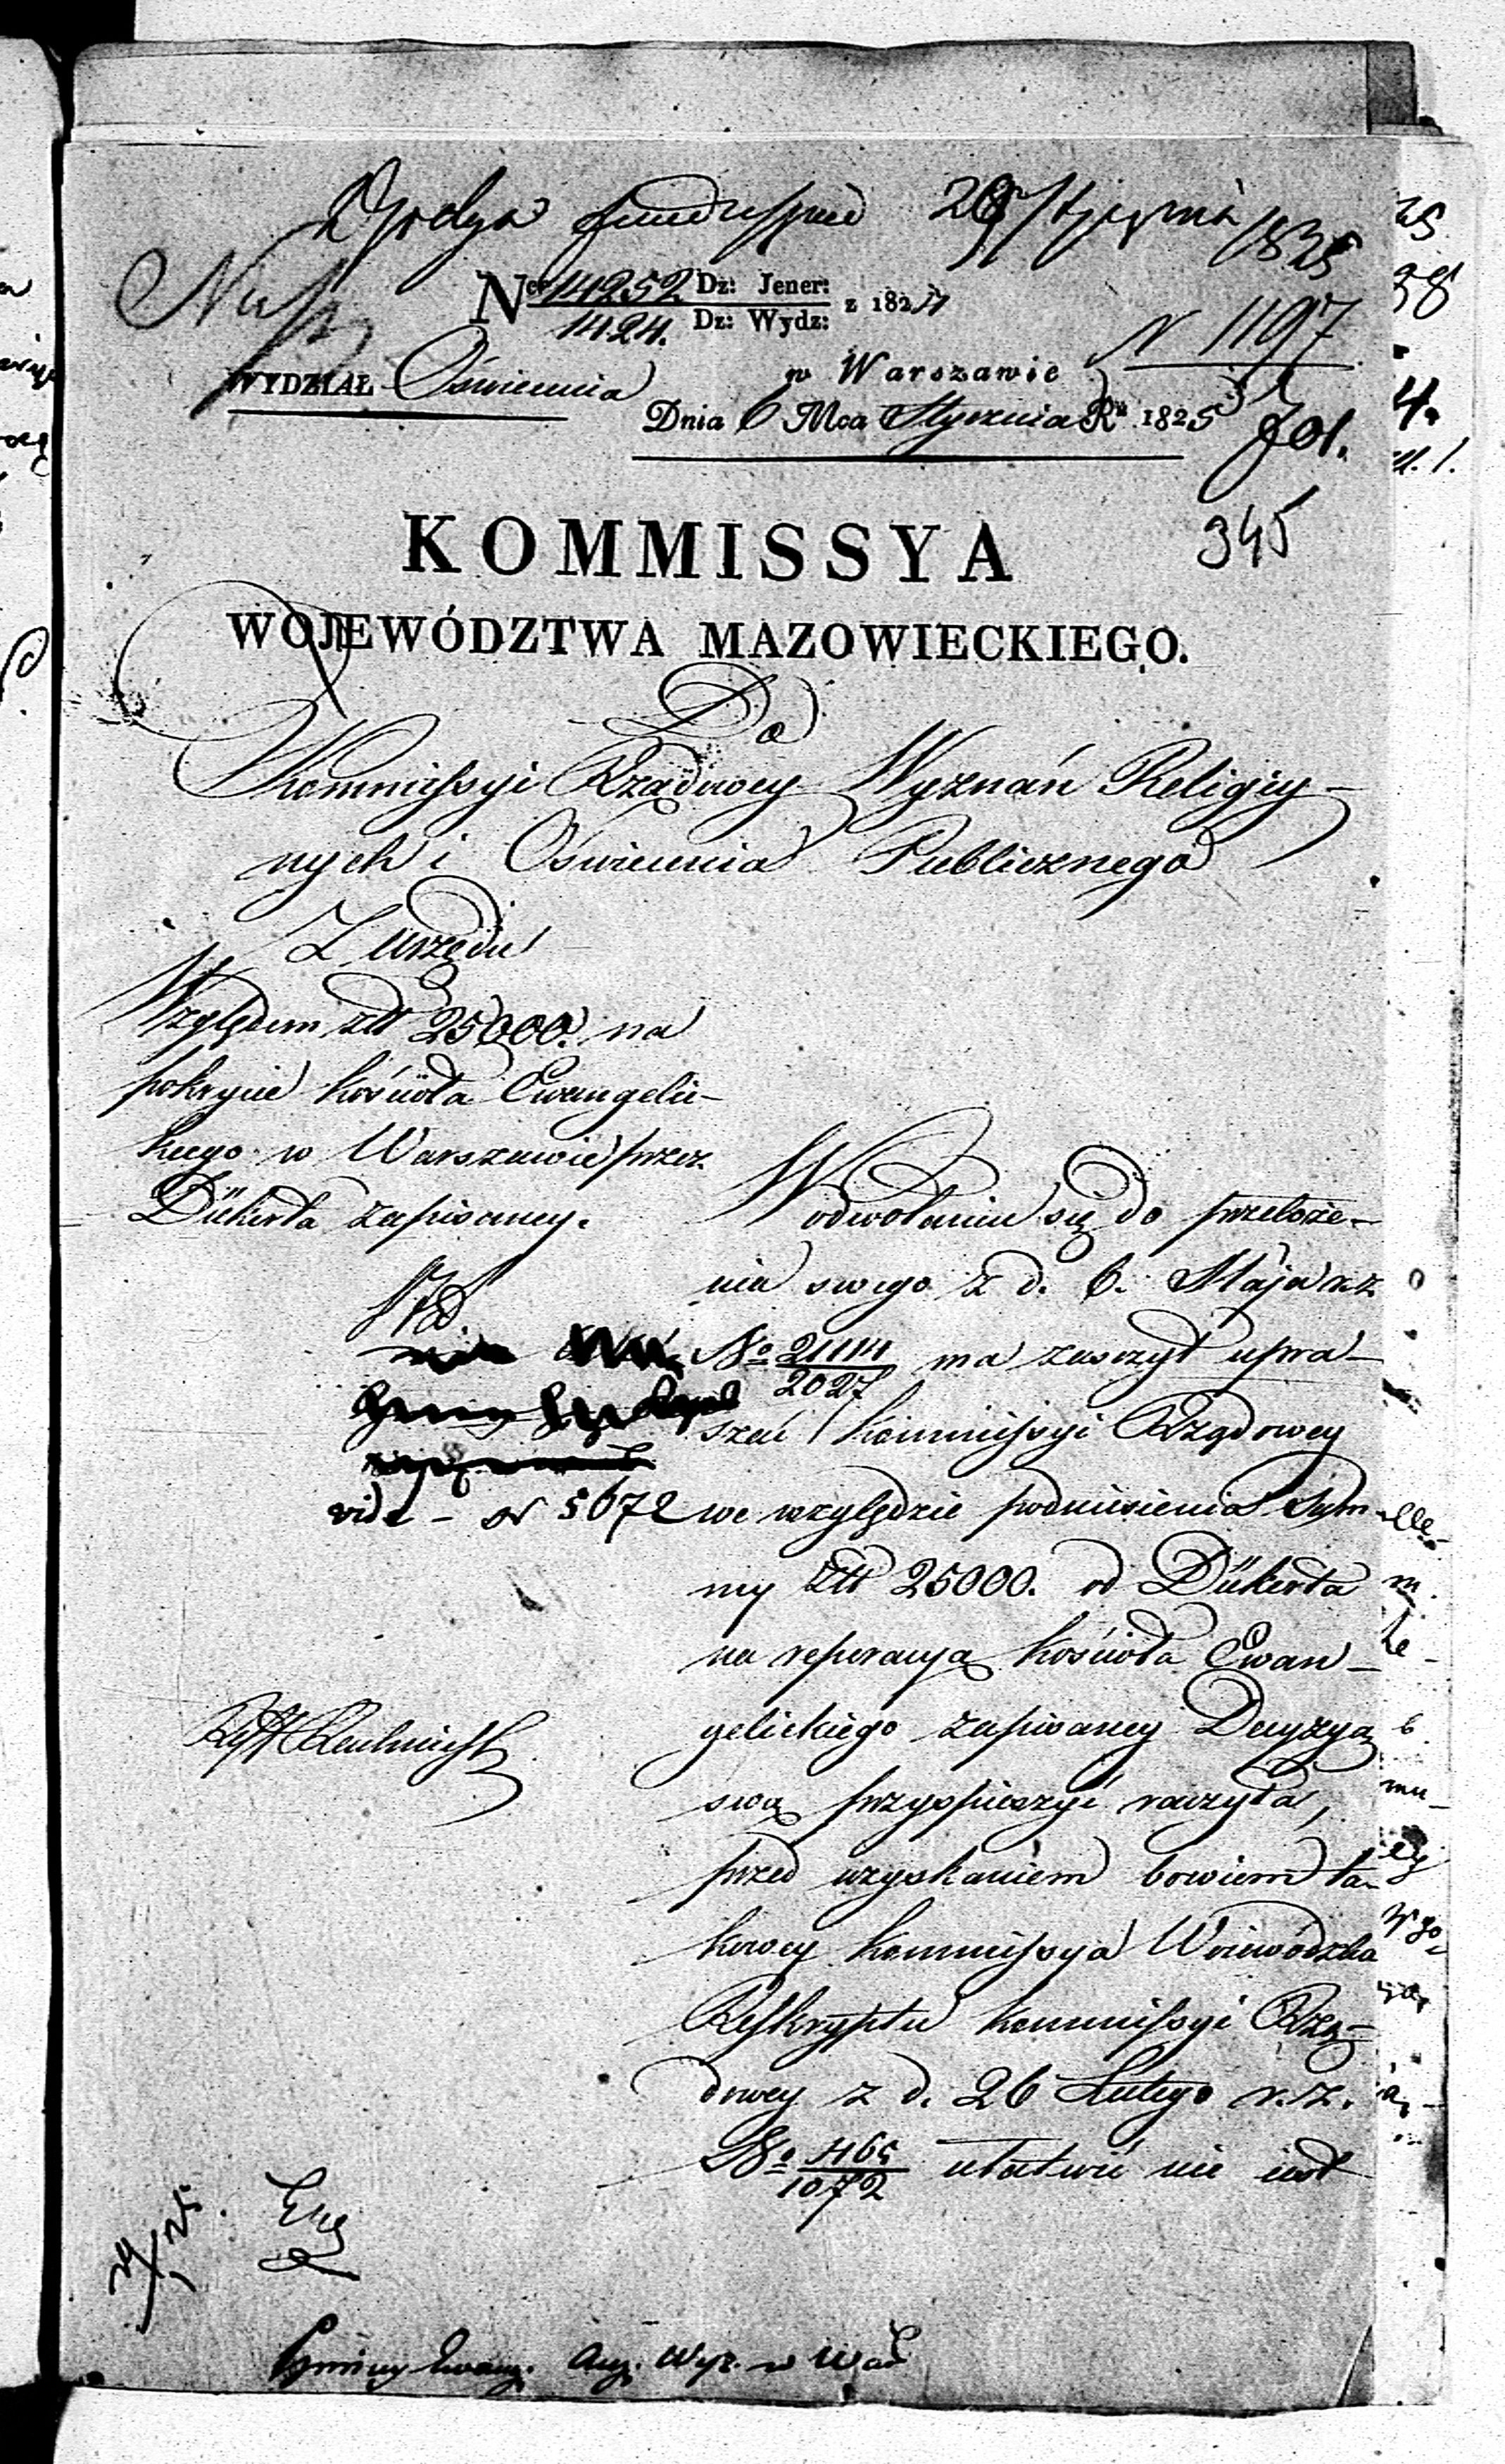 28 Stycznia 1825
Ner 14252 Dz: Jener: z 1824
1424. Dz: Wydz:
N 1197
WYDZIAŁ Oświecenia
w Warszawie
Dnia 6 Mca Stycznia Rű 1825
fol.
345
KOMMISSYA
WOJEWÓDZTWA MAZOWIECKIEGO.
Do
Kommissyi Rządowey Wyznań Religiy-
nych i Oświecenia Publicznego
Z Urzędu
Względem złt 25000. na
pokrycie kościoła Ewangelic-
kiego w Warszawie przez
Dükerta zapisaney.
W odwołaniu się do przełoże-
nia swego z d. 6. Maja r. z.
No 21114 ma zaszczyt upra-
2027
szać Kommissyi Rządowey
vide - N 5672
we względzie podniesienia Sum-
my złt 25000. od Dükerta
na reperacyą kościoła Ewan-
gelickiego zapisaney Decyzyą
swą przyspieszyć raczyła,
przed uzyskaniem bowiem ta-
kowey Kommissya Woiewódzka
Reskryptu Kommissyi Rzą-
dowey z d. 26 Lutego r. z.
No 465 ułatwić nie iest
1072
Gminy Ewang. Aug. Wyz. w War